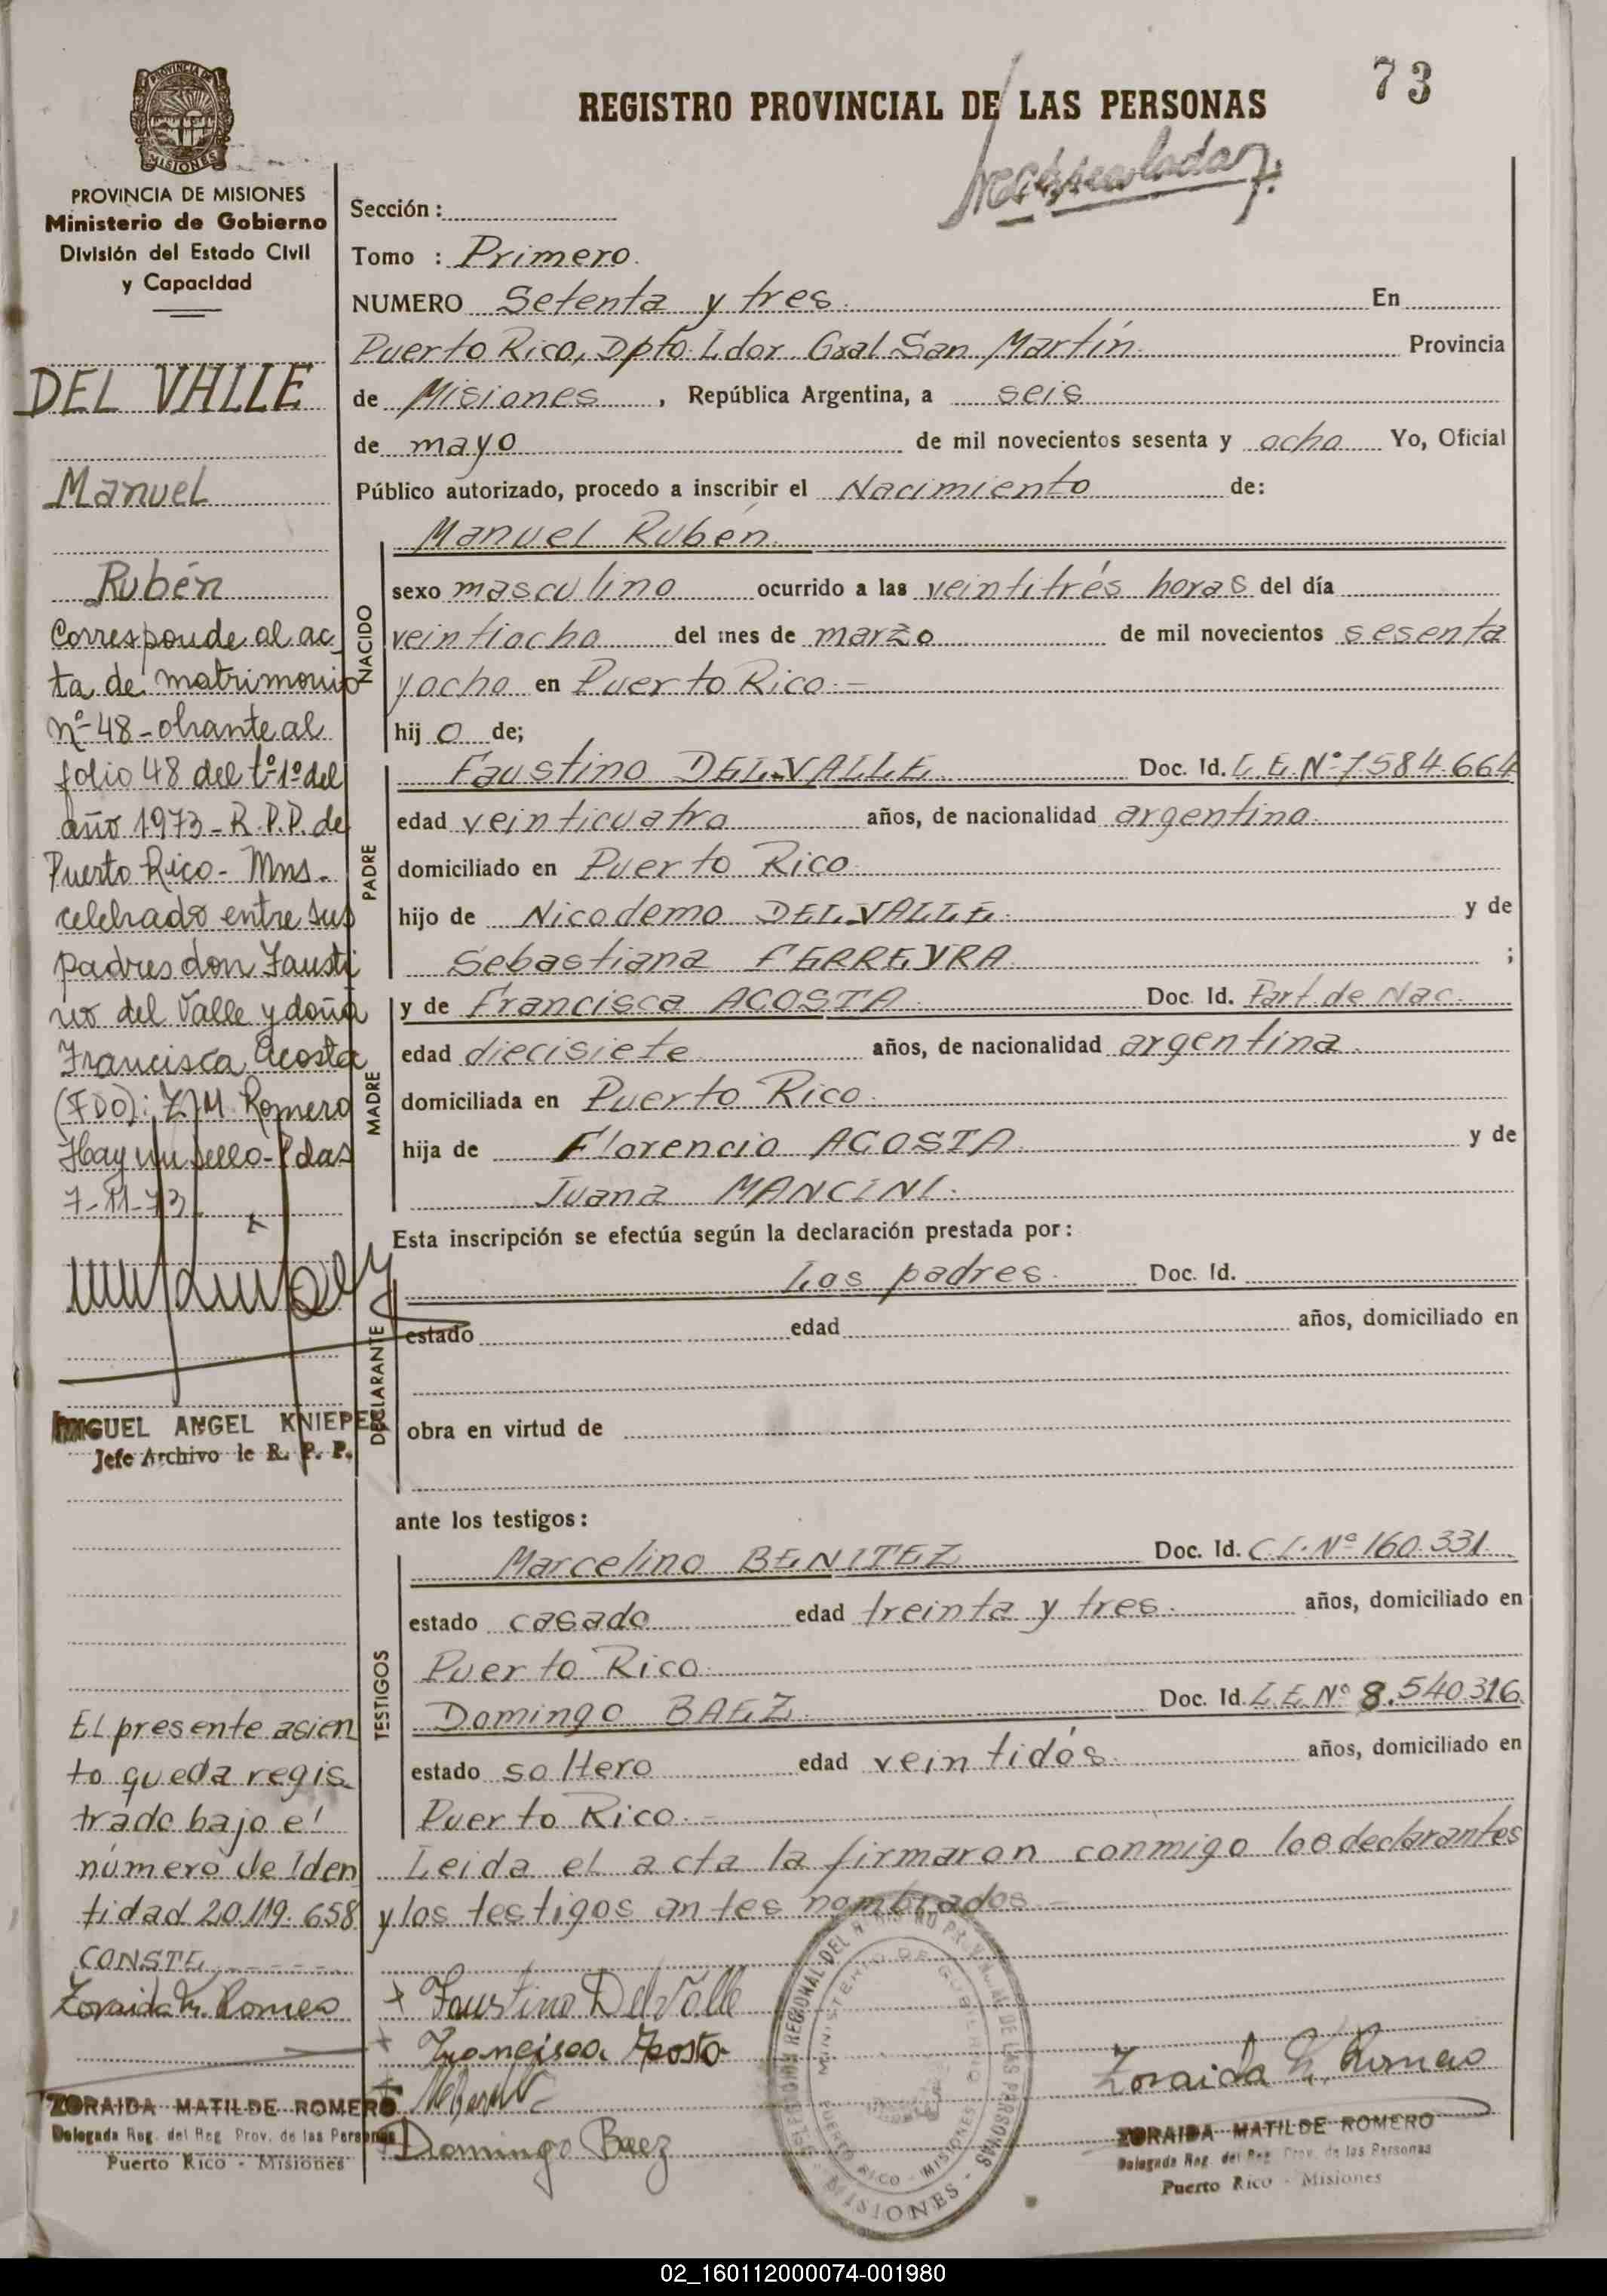 73
REGISTRO PROVINCIAL DE LAS PERSONAS
PROVINCIA DE MISIONES
PROVINCIA DE MISIONES
Ministerio de Gobierno
División del Estado Civil
y Capacidad
DEL VALLE
Manuel
Rubén
Corresponde al ac
ta de matrimonio
nº 48 - obrante al
folio 48 del tº 1º del
año 1973 - R.P.P. de
Puerto Rico - Mns.
celebrado entre sus
padres don Fausti
no del Valle y doña
Francisca Acosta
(FDO): Z.M. Romero
Hay un sello - Pdas
7-11-73
MIGUEL ANGEL KNIEPER
Jefe Archivo de R. P. P.
El presente asien
to queda regis
trado bajo el
número de Iden
tidad 20.119.658
CONSTE.------
Zoraida M. Romero
ZORAIDA MATILDE ROMERO
Delegada Reg. del Reg. Prov. de las Personas
Puerto Rico - Misiones
Sección :
Tomo : Primero.
NUMERO Setenta y tres. En
Puerto Rico, Dpto. Ldor. Gral San Martín. Provincia
de Misiones, República Argentina, a seis
de mayo de mil novecientos sesenta y ocho Yo, Oficial
Público autorizado, procedo a inscribir el Nacimiento de:
NACIDO
Manuel Rubén.
sexo masculino ocurrido a las veintitrés horas del día
veintiocho del mes de marzo de mil novecientos sesenta
y ocho en Puerto Rico.-
hij o de;
PADRE
Faustino DEL VALLE Doc. Id. L.E. Nº 7.584.664
edad veinticuatro años, de nacionalidad argentina.
domiciliado en Puerto Rico.
hijo de Nicodemo DEL VALLE. y de
Sebastiana FERREYRA ;
MADRE
y de Francisca ACOSTA. Doc. Id. Part. de Nac.
edad diecisiete años, de nacionalidad argentina.
domiciliada en Puerto Rico.
hija de Florencio ACOSTA. y de
Juana MANCINI.
Esta inscripción se efectúa según la declaración prestada por:
DECLARANTE
Los padres. Doc. Id.
estado edad años, domiciliado en
obra en virtud de
ante los testigos:
TESTIGOS
Marcelino BENITEZ Doc. Id. C.I. Nº 160.331.
estado casado edad treinta y tres. años, domiciliado en
Puerto Rico.
Domingo BAEZ. Doc. Id. L.E. Nº 8.540.316
estado soltero edad veintidós. años, domiciliado en
Puerto Rico.-
Leida el acta la firmaron conmigo los declarantes
y los testigos antes nombrados.-
Faustino Del Valle
Francisca Acosta
Domingo Baez
MINISTERIO DE GOBIERNO
PUERTO RICO - MISIONES
MISIONES
Zoraida M. Romero
ZORAIDA MATILDE ROMERO
Delegada Reg. del Reg. Prov. de las Personas
Puerto Rico - Misiones
02_160112000074-001980